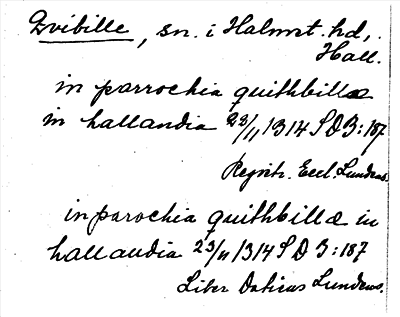 Qvibille, sn. i Halmst. hd,.
Hall.
in parrochia quithbillæ
in hallandia 23/11 1314 SD 3:187
Registr. Eccl. Lundens.
in parochia quithbillæ in
hallandia 23/11 1314 SD 3:187
Liber Daticus Lundens.